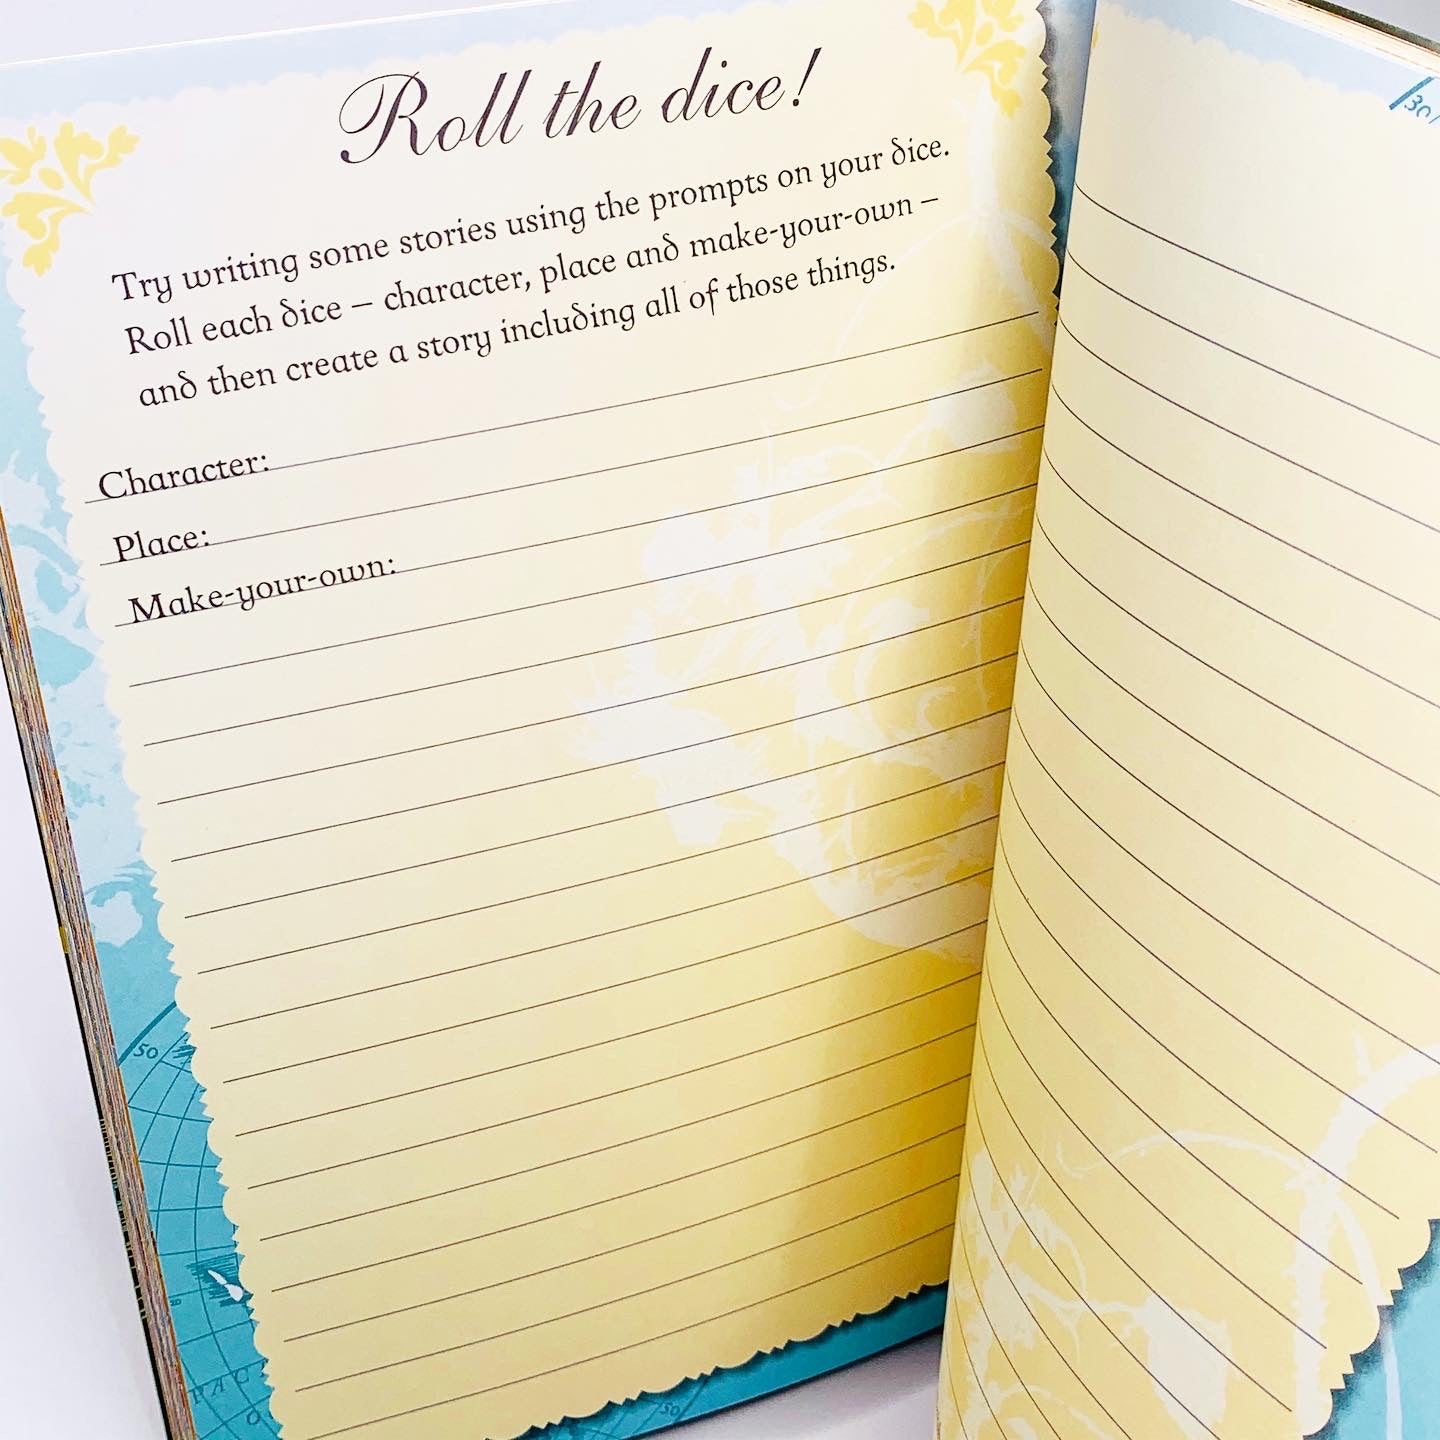 Roll the dice!
Try writing some stories using the prompts on your dice.
Roll each dice – character, place and make-your-own –
and then create a story including all of those things.
Character:
Place:
Make-your-own:
50
50